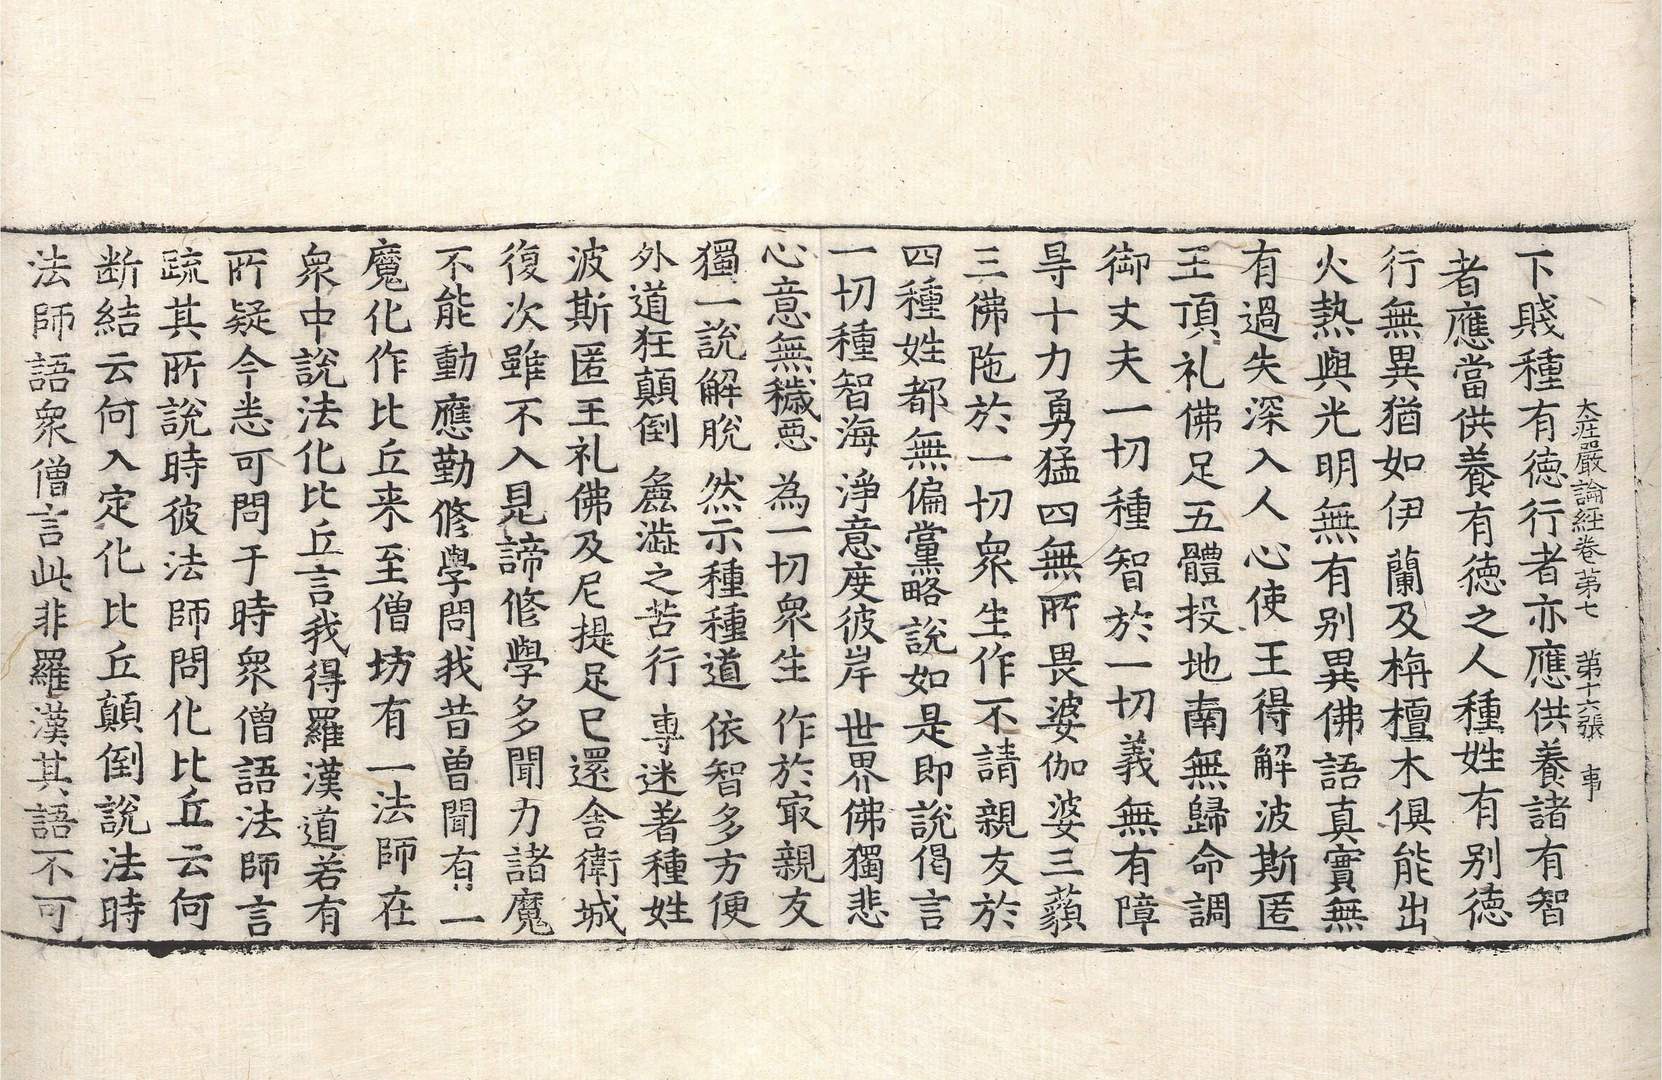 大莊嚴論經卷第七 第十六張 事
下賤種有德行者亦應供養諸有智
者應當供養有德之人種姓有別德
行無異猶如伊蘭及栴檀木俱能出
火熱與光明無有別異佛語真實無
有過失深入人心使王得解波斯匿
王頂礼佛足五體投地南無歸命調
御丈夫一切種智於一切義無有障
㝵十力勇猛四無所畏婆伽婆三藐
三佛陁於一切衆生作不請親友於
四種姓都無偏黨略說如是即說偈言
一切種智海 淨意度彼岸 世界佛獨悲
心意無穢惡 為一切衆生 作於㝡親友
獨一說解脫 然示種種道 依智多方便
外道狂顛倒 麁澁之苦行 專迷著種姓
波斯匿王礼佛及尼提足已還舍衛城
復次雖不入見諦修學多聞力諸魔
不能動應勤修學問我昔曾聞有一
魔化作比丘来至僧坊有一法師在
衆中說法化比丘言我得羅漢道若有
所疑今悉可問于時衆僧語法師言
疏其所說時彼法師問化比丘云何
断結云何入定化比丘顛倒說法時
法師語衆僧言此非羅漢其語不可